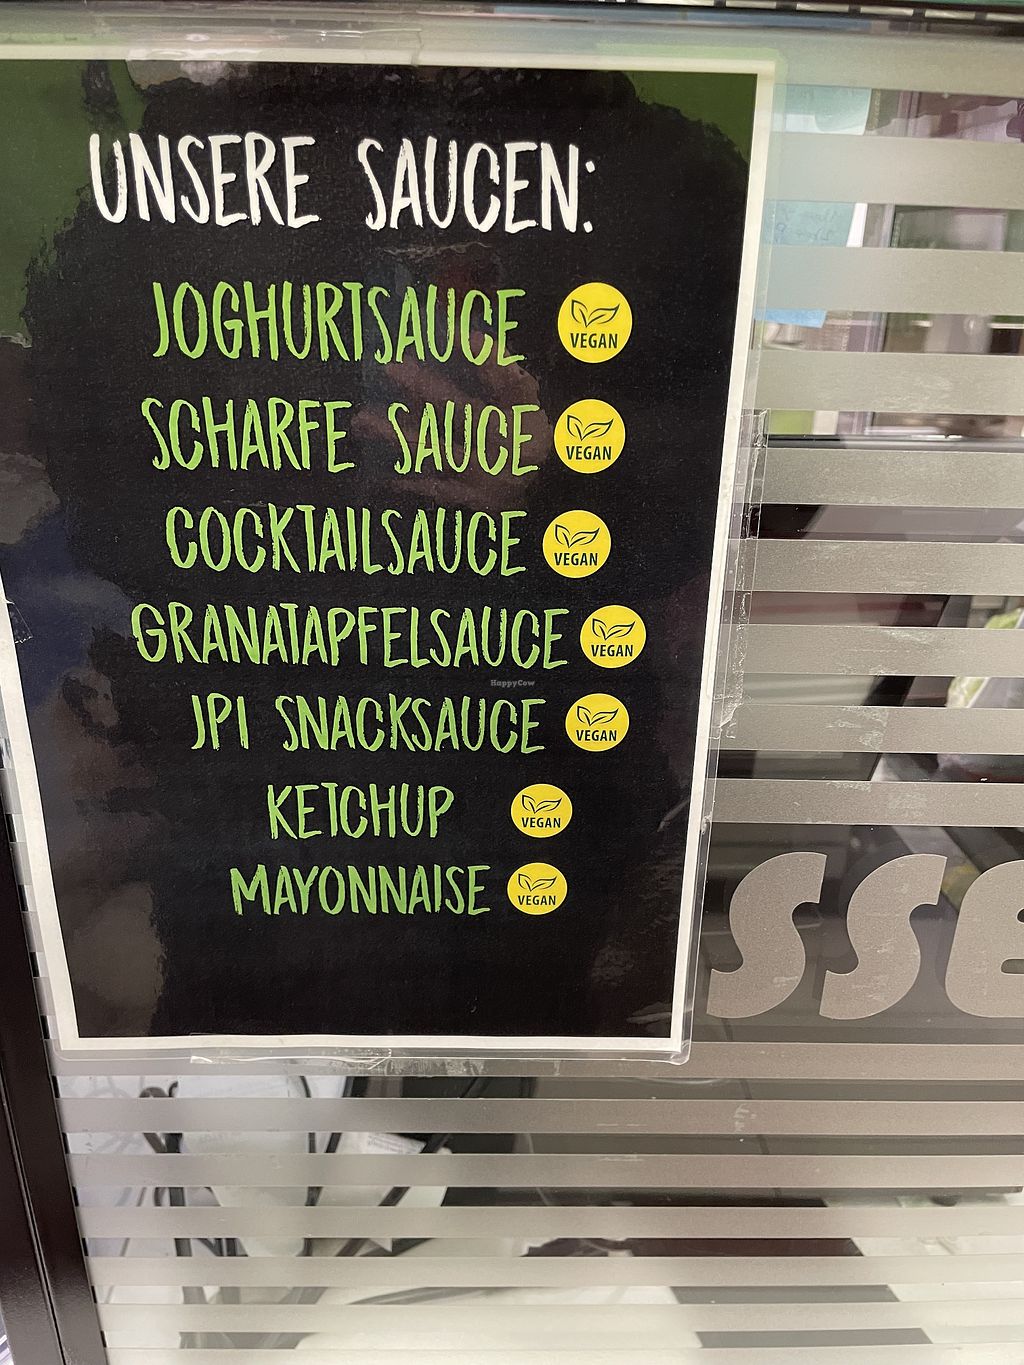 UNSERE SAUCEN:
JOGHURTSAUCE VEGAN
SCHARFE SAUCE VEGAN
COCKTAILSAUCE VEGAN
GRANATAPFELSAUCE VEGAN
HappyCow
JPI SNACKSAUCE VEGAN
KETCHUP VEGAN
MAYONNAISE VEGAN
sse